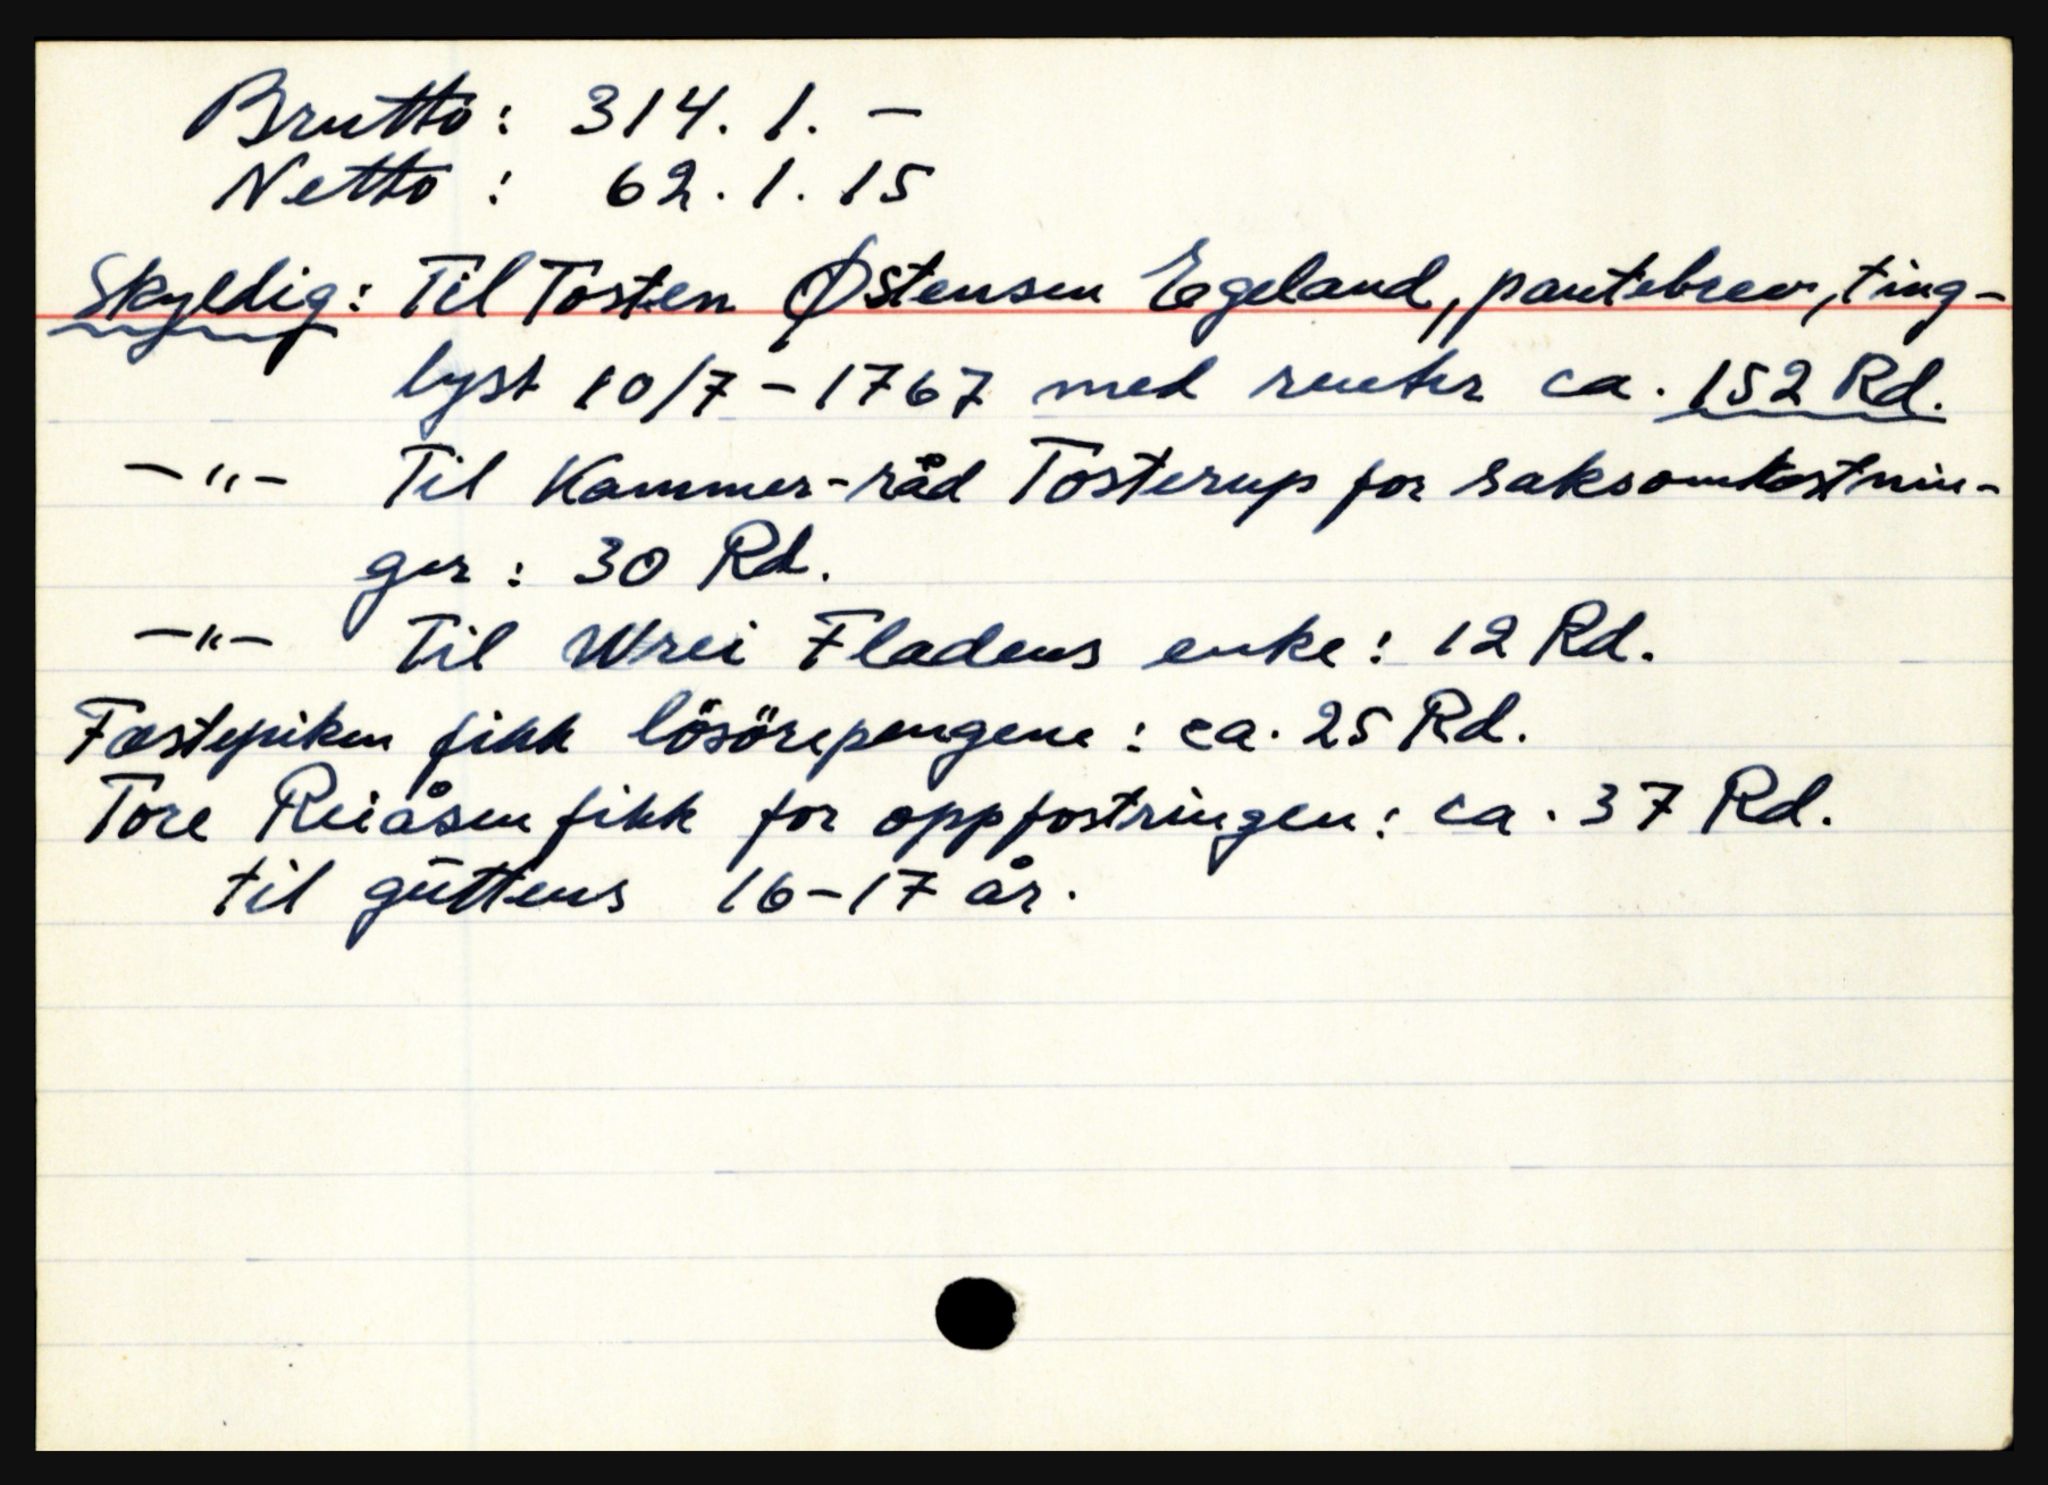 Brutto: 314. 1. –
Netto: 62. 1. 15
Skyldig: Til Tosten Østensen Egeland, pantebrev, ting-
lyst 10/7 – 1767 med renter ca. 152 Rd.
– " – Til Kammer-råd Tosterup for saksomkostnin-
ger: 30 Rd.
– " – Til Wrei Fladens enke: 12 Rd.
Fæstepiken fikk lösörepengene: ca. 25 Rd.
Tore Reiåsen fikk for oppfostringen: ca. 37 Rd.
til guttens 16–17 år.